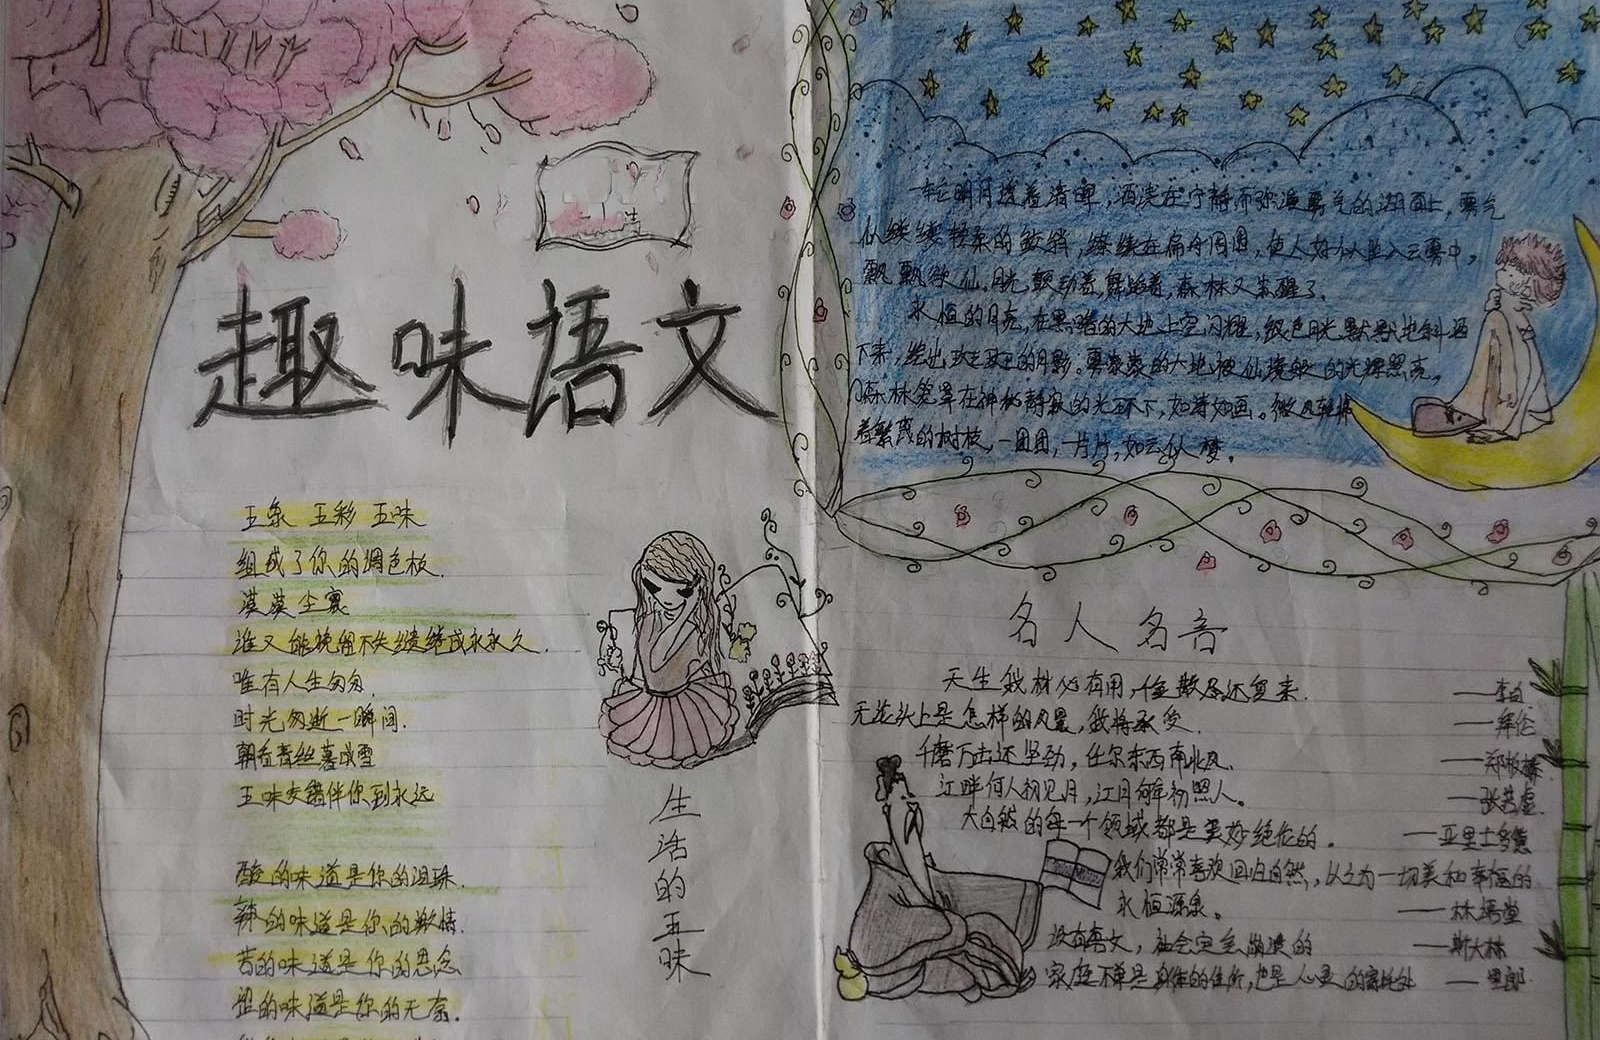 趣味语文
五条 五彩 五味
组成了你的调色板.
漠漠尘寰
谁又能挽留不失继续成永永久.
唯有人生匆匆.
时光匆逝一瞬间.
朝看青丝暮成雪
五味交错伴你到永远
酸的味道是你的泪珠.
辣的味道是你的激情.
苦的味道是你的思念
涩的味道是你的无奈.
生活的五味
一轮明月披着清晖,洒浇在宁静而弥漫雾气的湖面上,雾气
似缕缕轻柔的鲛绡,缭绕在扁舟周围,使人好似坐入云雾中,
飘飘欲仙.月光,颤动着,舞蹈着,森林又苏醒了.
永恒的月亮,在黑暗的大地上空闪耀,银色月光默默地斜洒
下来,绘出斑斑的月影。雾蒙蒙的大地被仙境般的光辉照亮,
森林笼罩在神秘静寂的光环下,如诗如画。微风轻拂
着繁茂的树枝,一团团,一片片,如云似梦。
名人名言
天生我材必有用,千金散尽还复来. ——李白
无论头上是怎样的风景,我将承受. ——拜伦
千磨万击还坚劲,任尔东西南北风. ——郑板桥
江畔何人初见月,江月何年初照人。 ——张若虚
大自然的每一个领域都是美妙绝伦的. ——亚里士多德
我们常常喜欢回归自然,以之为一切美和幸福的
永恒源泉。 ——林语堂
没有 ,社会定会崩溃的 ——斯大林
家庭不单是身体的住所,也是心灵的寄托处